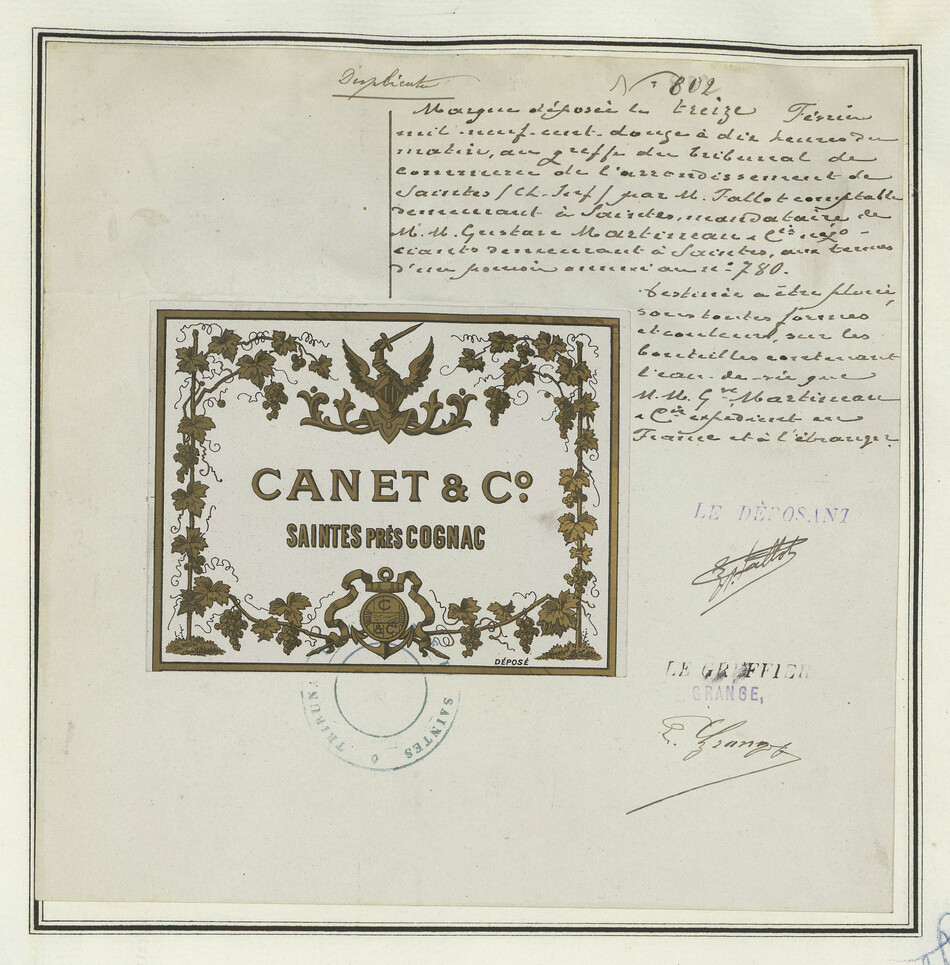 Duplicata
N° 802
Marque déposée le treize Février
mil neuf cent douze à dix heures du
matin, au greffe du tribunal de
commerce de l'arrondissement de
Saintes (Ch. Inf) par M. Fallot comptable
demeurant à Saintes, mandataire de
M. M. Gustave Martineau & Cie négo-
ciants demeurant à Saintes, aux termes
d'un pouvoir annexé au n° 780.
Destinée à être placée,
sous toutes formes
et couleurs, sur les
bouteilles contenant
l'eau-de-vie que
M. M. Gve Martineau
& Cie expédient en
France et à l'étranger.
CANET & Co.
SAINTES PRÈS COGNAC
C
& Co
DÉPOSÉ
LE DÉPOSANT
Fallot
LE GREFFIER
GRANGE,
E. Grange
TRIBUN
SAINTES